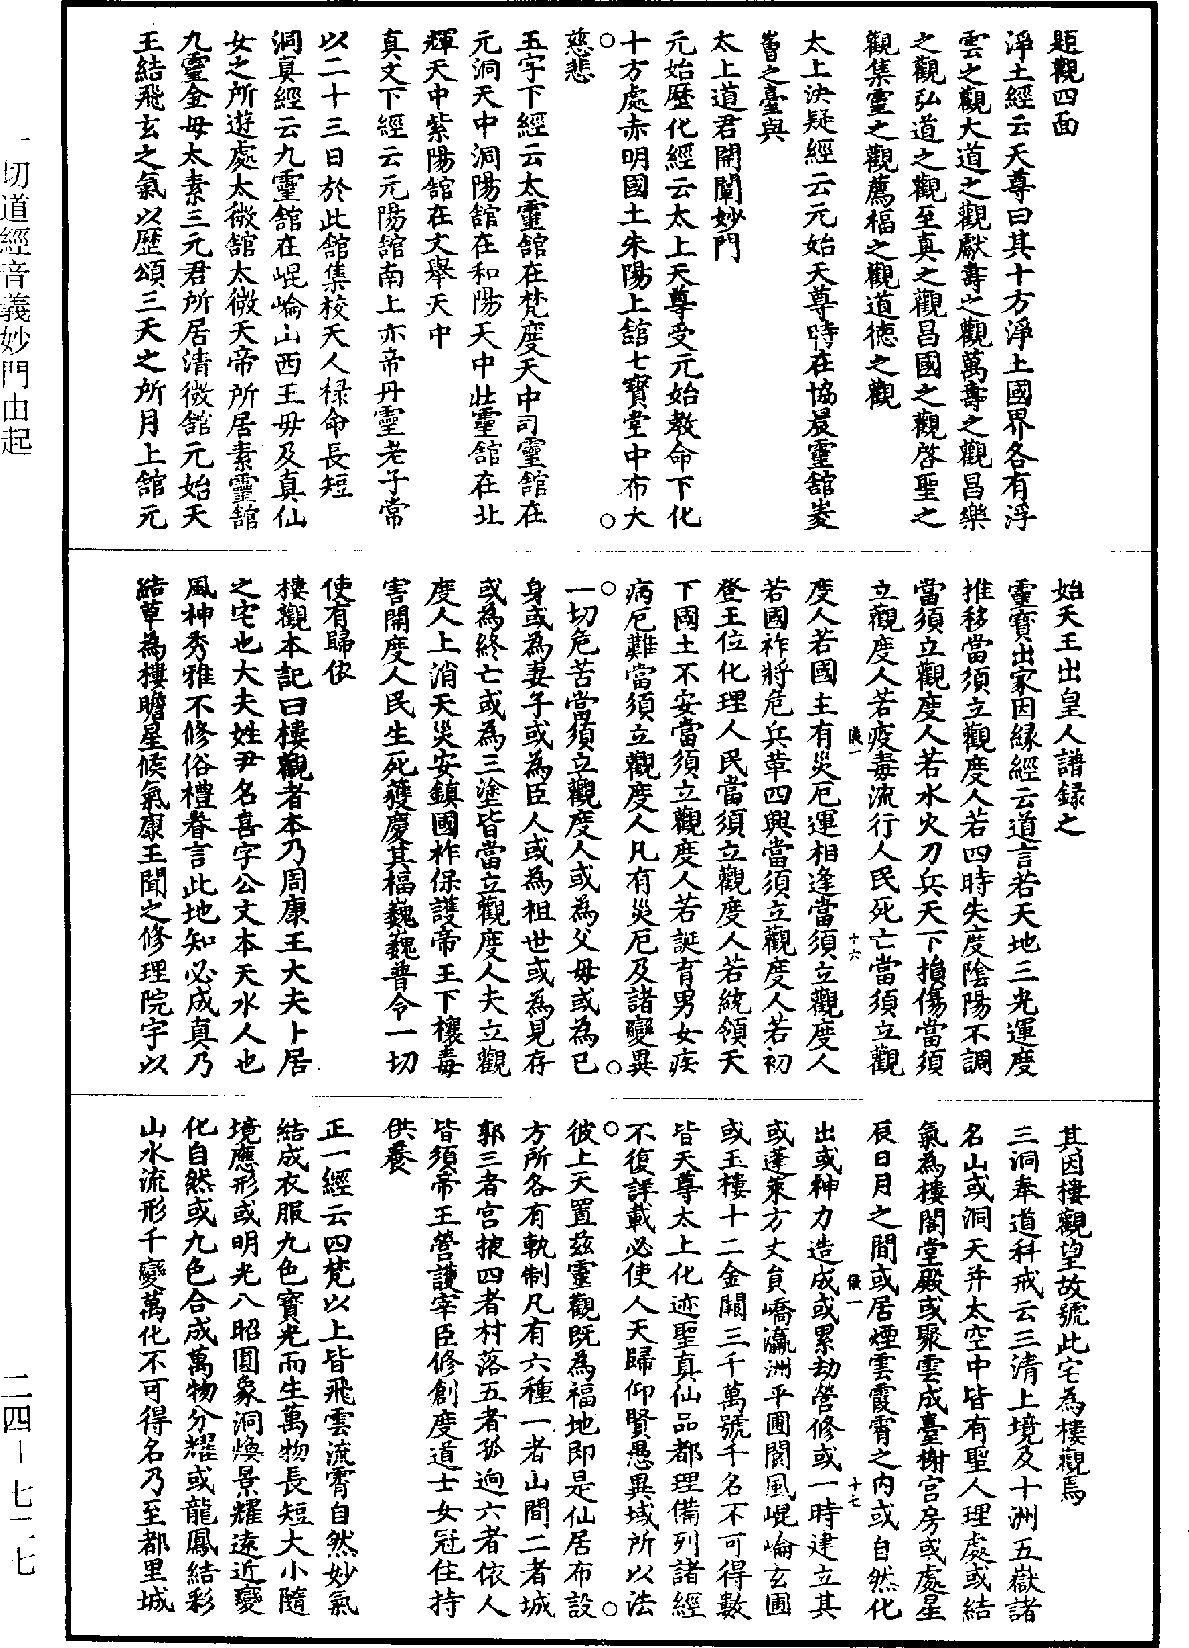 題觀四面
淨土經云天尊曰其十方淨土國界各有浮
雲之觀大道之觀獻壽之觀萬壽之觀昌樂
之觀弘道之觀至真之觀昌國之觀啓聖之
觀集靈之觀薦福之觀道德之觀
太上決疑經云元始天尊時在協晨靈舘蔞
崙之臺與
太上道君開闡妙門
元始歷化經云太上天尊受元始教命下化
十方處赤明國土朱陽上舘七寶堂中布大
慈悲
玉字下經云太靈舘在梵度天中司靈舘在
元洞天中洞陽舘在和陽天中壯靈舘在北
輝天中紫陽舘在文舉天中
真文下經云元陽舘南上亦帝丹靈老子常
以二十三日於此舘集校天人祿命長短
洞真經云九靈舘在崐崘山西王母及真仙
女之所遊處太微舘太微天帝所居素靈舘
九靈金母太素三元君所居清微舘元始天
王結飛玄之氣以歷頌三天之所月上舘元
始天王出皇人譜録之
靈寶出家因緣經云道言若天地三光運度
推移當須立觀度人若四時失度陰陽不調
當須立觀度人若水火刀兵天下損傷當須
立觀度人若疫毒流行人民死亡當須立觀
度人若國主有災厄運相逢當須立觀度人
若國祚將危兵革四興當須立觀度人若初
登王位化理人民當須立觀度人若統領天
下國土不安當須立觀度人若誕育男女疾
病厄難當須立觀度人凡有災厄及諸變異
一切危苦當須立觀度人或為父母或為已
身或為妻子或為臣人或為祖世或為見存
或為終亡或為三塗皆當立觀度人夫立觀
度人上消天災安鎮國祚保護帝王下禳毒
害開度人民生死獲慶其福巍巍普令一切
使有歸依
樓觀本記曰樓觀者本乃周康王大夫卜居
之宅也大夫姓尹名喜字公文本天水人也
風神秀雅不修俗禮眷言此地知必成真乃
結草為樓瞻星候氣康王聞之修理院宇以
其因樓觀望故號此宅為樓觀焉
三洞奉道科戒云三清上境及十洲五嶽諸
名山或洞天并太空中皆有聖人理處或結
氣為樓閣堂殿或聚雲成臺榭宮房或處星
辰日月之間或居煙雲霞霄之内或自然化
出或神力造成或累劫營修或一時建立其
或蓬萊方丈貟嶠瀛洲平圃閬風崐崘玄圃
或玉樓十二金闕三千萬號千名不可得數
皆天尊太上化迹聖真仙品都理備列諸經
不復詳載必使人天歸仰賢愚異域所以法
彼上天置茲靈觀既為福地即是仙居布設
方所各有軌制凡有六種一者山間二者城
郭三者宮掖四者村落五者孤迥六者依人
皆須帝王營護宰臣修創度道士女冠住持
供養
正一經云四梵以上皆飛雲流霄自然妙氣
結成衣服九色寶光而生萬物長短大小隨
境應形或明光八昭圓象洞煥景耀遠近變
化自然或九色合成萬物分耀或龍鳳結彩
山水流形千變萬化不可得名乃至都里城
儀一
十六
儀一
十七
一切道經音義妙門由起
二四－七二七